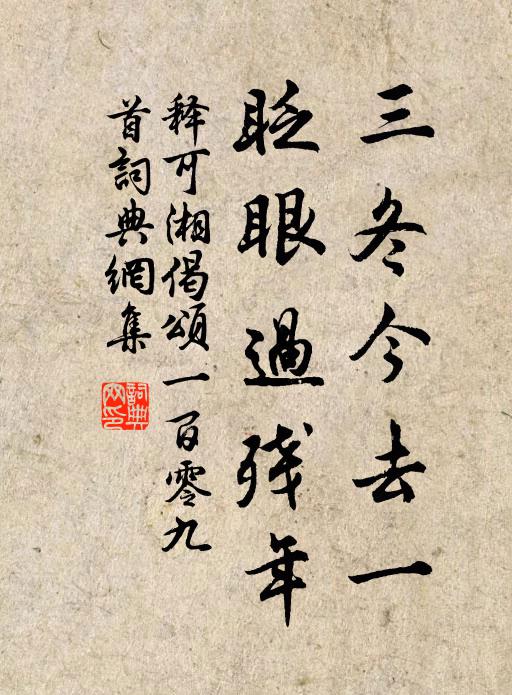 三冬今去一
眨眼過残年
释可湘偈頌一百零九
首詞典網集
詞典
网印